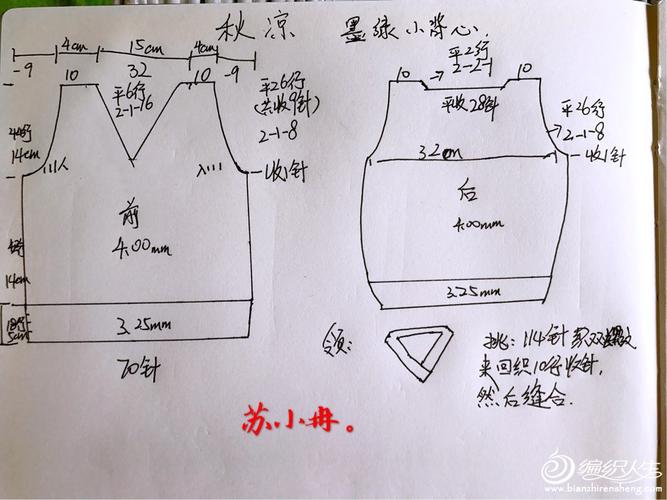 秋凉 墨绿小背心.
4cm 15cm 4cm
-9 10 32 10 -9
平6行
2-1-16
平26行
(共收9针)
2-1-8
收1针
14cm
前
4.00mm
14cm
3.25mm
5cm
70针
平2行
2-2-1
10 10
平收28针
平26行
2-1-8
收1针
32cm
后
4.00mm
3.25mm
领:
挑:114针
来回织10行收针,
然后缝合.
苏小冉。
编织人生
www.bianzhirensheng.com